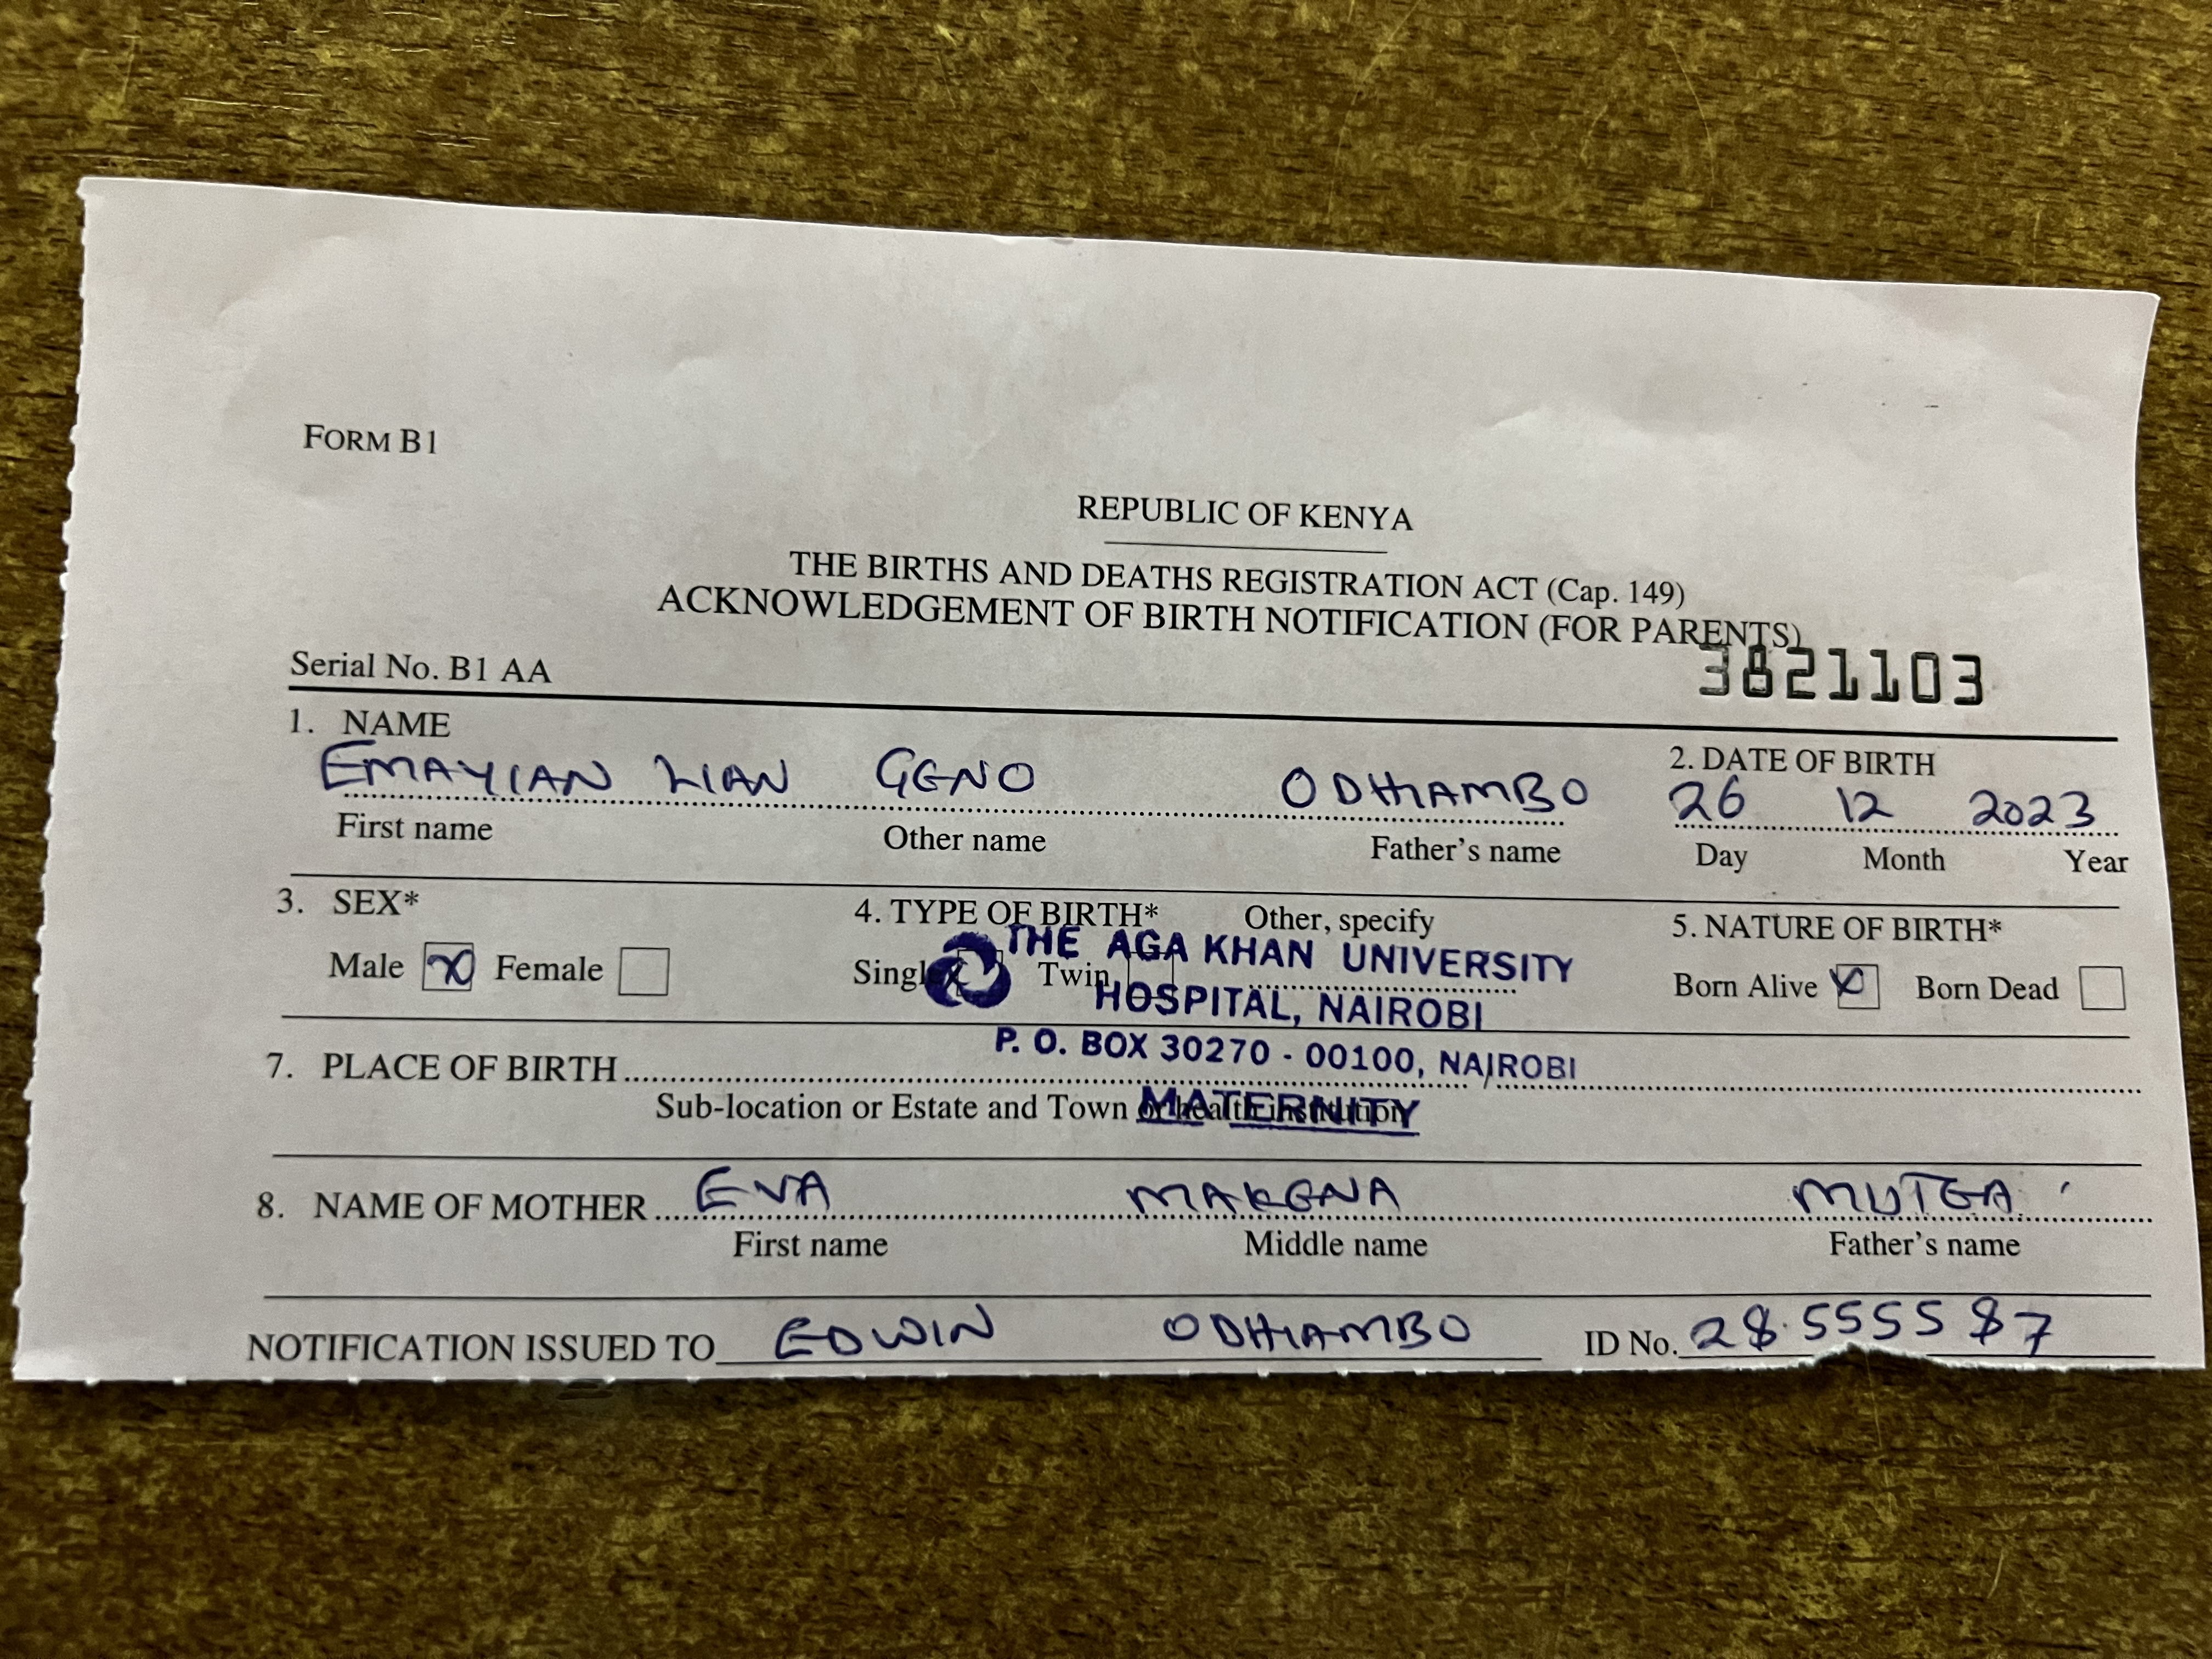 FORM B1
REPUBLIC OF KENYA
THE BIRTHS AND DEATHS REGISTRATION ACT (Cap. 149)
ACKNOWLEDGEMENT OF BIRTH NOTIFICATION (FOR PARENTS)
Serial No. B1 AA 3821103
1. NAME 2. DATE OF BIRTH
EMAYIAN LIAN GENO ODHIAMBO 26 12 2023
First name Other name Father's name Day Month Year
3. SEX* 4. TYPE OF BIRTH* Other, specify 5. NATURE OF BIRTH*
Male X Female Single X Twin Born Alive X Born Dead
THE AGA KHAN UNIVERSITY
HOSPITAL, NAIROBI
P. O. BOX 30270 - 00100, NAIROBI
MATERNITY
7. PLACE OF BIRTH
Sub-location or Estate and Town or health institution
8. NAME OF MOTHER EVA MAKENA MUTEA
First name Middle name Father's name
NOTIFICATION ISSUED TO EDWIN ODHIAMBO ID No. 28555587